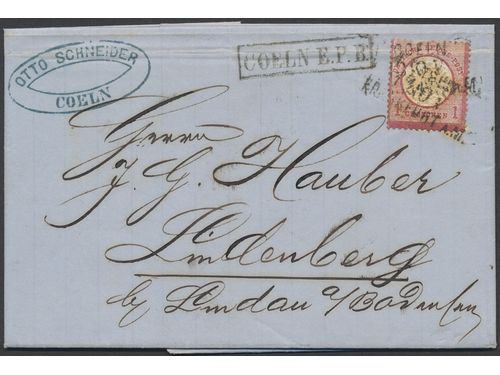 OTTO SCHNEIDER
COELN
COELN E.P. B.
COELN
1
Herrn
J. G. Hauber
Lindenberg
by Lindau a/Bodensee